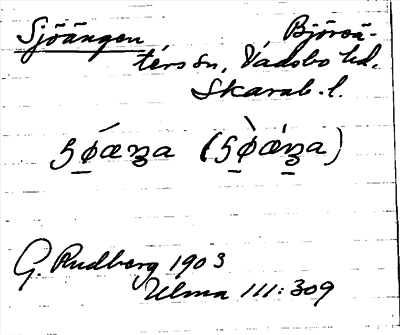 Sjöängen, Björsä-
ters sn, Vadsbo hd.
Skarab. l.
G. Rudberg 1903
Ulma 111:309